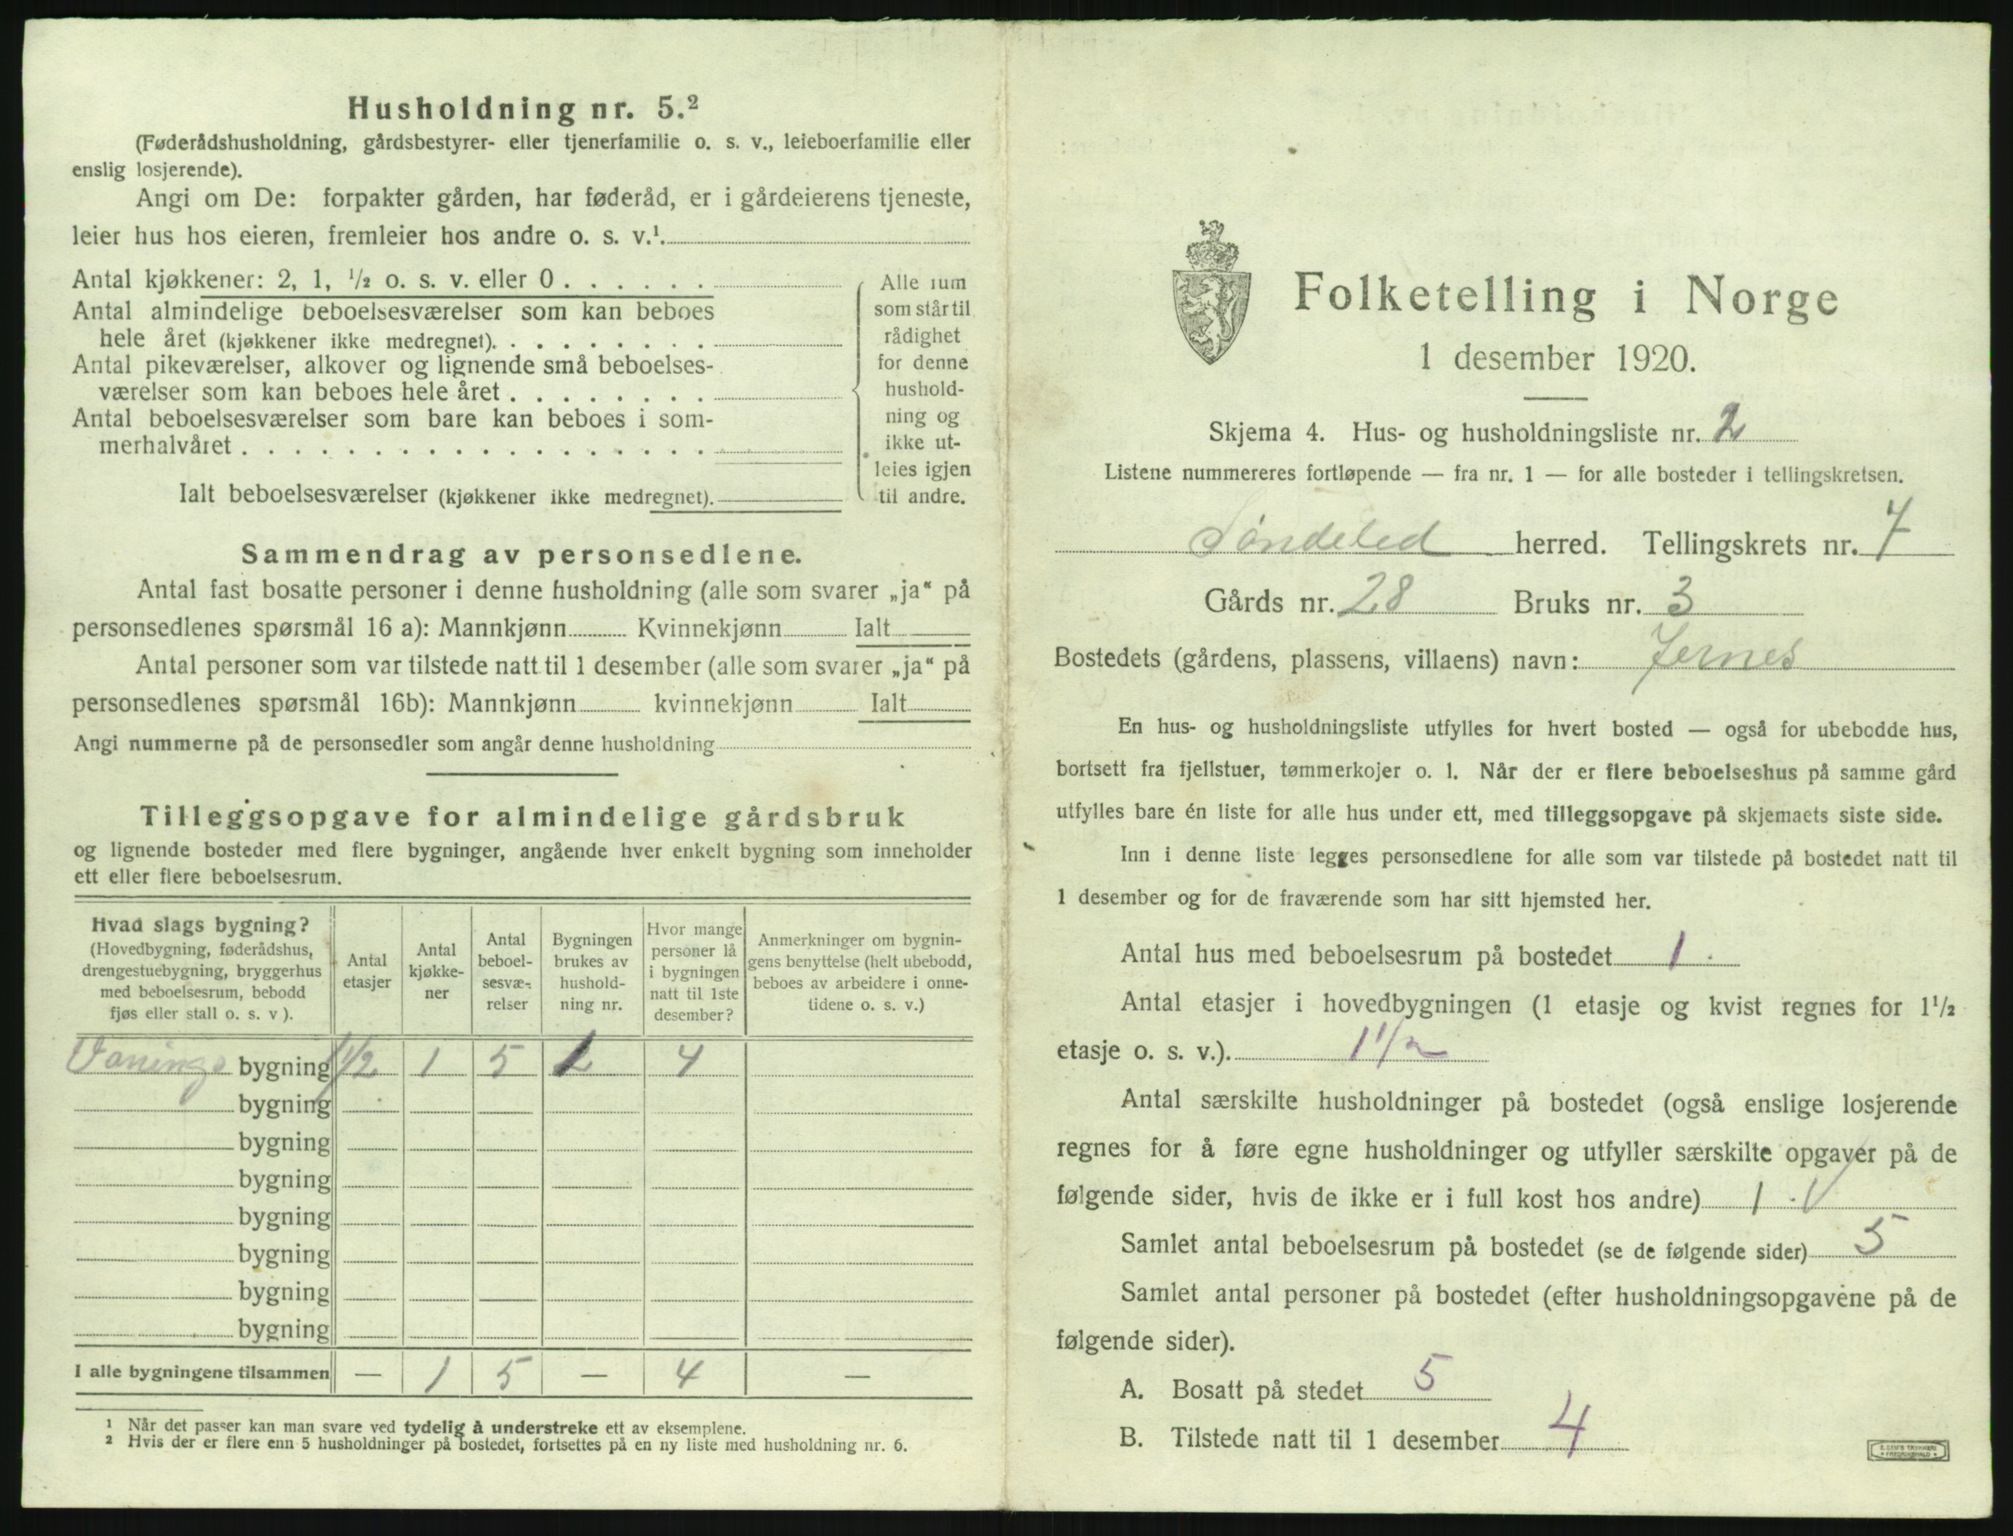 Husholdning nr. 5.²
(Føderådshusholdning, gårdsbestyrer- eller tjenerfamilie o. s. v., leieboerfamilie eller
enslig losjerende).
Angi om De: forpakter gården, har føderåd, er i gårdeierens tjeneste,
leier hus hos eieren, fremleier hos andre o. s. v.¹.
Antal kjøkkener: 2, 1, ½ o. s. v. eller 0 . . . . . .
Antal almindelige beboelsesværelser som kan beboes
hele året (kjøkkener ikke medregnet). . . . . . . . .
Antal pikeværelser, alkover og lignende små beboelses-
værelser som kan beboes hele året . . . . . . . .
Antal beboelsesværelser som bare kan beboes i som-
merhalvåret . . . . . . . . . . . . . . . . . .
Ialt beboelsesværelser (kjøkkener ikke medregnet).
Alle rum
som står til
rådighet
for denne
hushold-
ning og
ikke ut-
leies igjen
til andre.
Sammendrag av personsedlene.
Antal fast bosatte personer i denne husholdning (alle som svarer „ja“ på
personsedlenes spørsmål 16 a): Mannkjønn Kvinnekjønn Ialt
Antal personer som var tilstede natt til 1 desember (alle som svarer „ja“ på
personsedlenes spørsmål 16b): Mannkjønn kvinnekjønn Ialt
Angi nummerne på de personsedler som angår denne husholdning
Tilleggsopgave for almindelige gårdsbruk
og lignende bosteder med flere bygninger, angående hver enkelt bygning som inneholder
ett eller flere beboelsesrum.
Hvad slags bygning?
(Hovedbygning, føderådshus,
drengestuebygning, bryggerhus
med beboelsesrum, bebodd
fjøs eller stall o. s. v ).
Antal
etasjer
Antal
kjøkke-
ner
Antal
beboel-
sesvæ-
relser
Bygningen
brukes av
hushold-
ning nr.
Hvor mange
personer lå
i bygningen
natt til 1ste
desember?
Anmerkninger om bygnin-
gens benyttelse (helt ubebodd,
beboes av arbeidere i onne-
tidene o. s. v.)
Vånings bygning 1½ 1 5 1 4
bygning
bygning
bygning
bygning
bygning
bygning
bygning
I alle bygningene tilsammen — 1 5 — 4 —
¹ Når det passer kan man svare ved tydelig å understreke ett av eksemplene.
² Hvis der er flere enn 5 husholdninger på bostedet, fortsettes på en ny liste med husholdning nr. 6.
Folketelling i Norge
1 desember 1920.
Skjema 4. Hus- og husholdningsliste nr. 2
Listene nummereres fortløpende — fra nr. 1 — for alle bosteder i tellingskretsen.
Søndeled herred. Tellingskrets nr. 7
Gårds nr. 28 Bruks nr. 3
Bostedets (gårdens, plassens, villaens) navn: Jernes
En hus- og husholdningsliste utfylles for hvert bosted — også for ubebodde hus,
bortsett fra fjellstuer, tømmerkojer o. l. Når der er flere beboelseshus på samme gård
utfylles bare én liste for alle hus under ett, med tilleggsopgave på skjemaets siste side.
Inn i denne liste legges personsedlene for alle som var tilstede på bostedet natt til
1 desember og for de fraværende som har sitt hjemsted her.
Antal hus med beboelsesrum på bostedet 1.
Antal etasjer i hovedbygningen (1 etasje og kvist regnes for 1½
etasje o. s. v.). 1½
Antal særskilte husholdninger på bostedet (også enslige losjerende
regnes for å føre egne husholdninger og utfyller særskilte opgaver på de
følgende sider, hvis de ikke er i full kost hos andre) 1.
Samlet antal beboelsesrum på bostedet (se de følgende sider) 5
Samlet antal personer på bostedet (efter husholdningsopgavene på de
følgende sider).
A. Bosatt på stedet 5
B. Tilstede natt til 1 desember 4